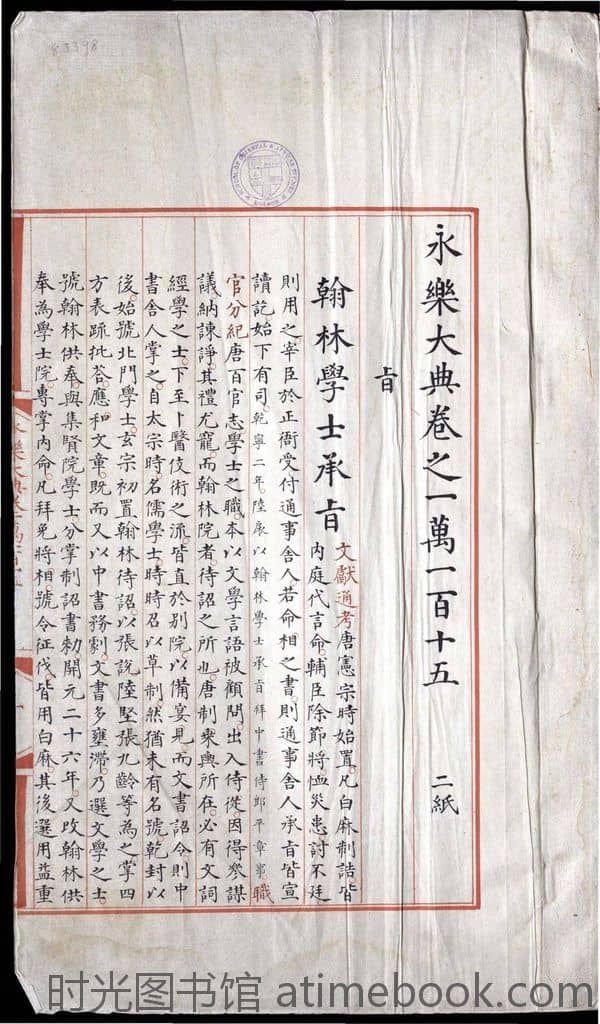 83398
永樂大典卷之一萬一百十五 二紙
旨
翰林學士承旨
文獻通考唐憲宗時始置凡白麻制誥皆
内庭代言命輔臣除節將恤災患討不廷
則用之宰臣於正衙受付通事舍人若命相之書則通事舍人承旨皆宣
讀訖始下有司乾寧二年陸扆以翰林學士承旨拜中書侍郎平章事職
官分紀唐百官志學士之職本以文學言語被顧問出入侍從因得參謀
議納諫諍其禮尤寵而翰林院者待詔之所也唐制乘輿所在必有文詞
經學之士下至卜醫伎術之流皆直於别院以備宴見而文書詔令則中
書舍人掌之自太宗時名儒學士時時召以草制然猶未有名號乾封以
後始號北門學士玄宗初置翰林待詔以張說陸堅張九齡等為之掌四
方表疏批荅應和文章既而又以中書務劇文書多壅滯乃選文學之士
號翰林供奉與集賢院學士分掌制詔書勑開元二十六年又改翰林供
奉為學士院專掌内命凡拜免將相號令征伐皆用白麻其後選用益重
时光图书馆 atimebook.com